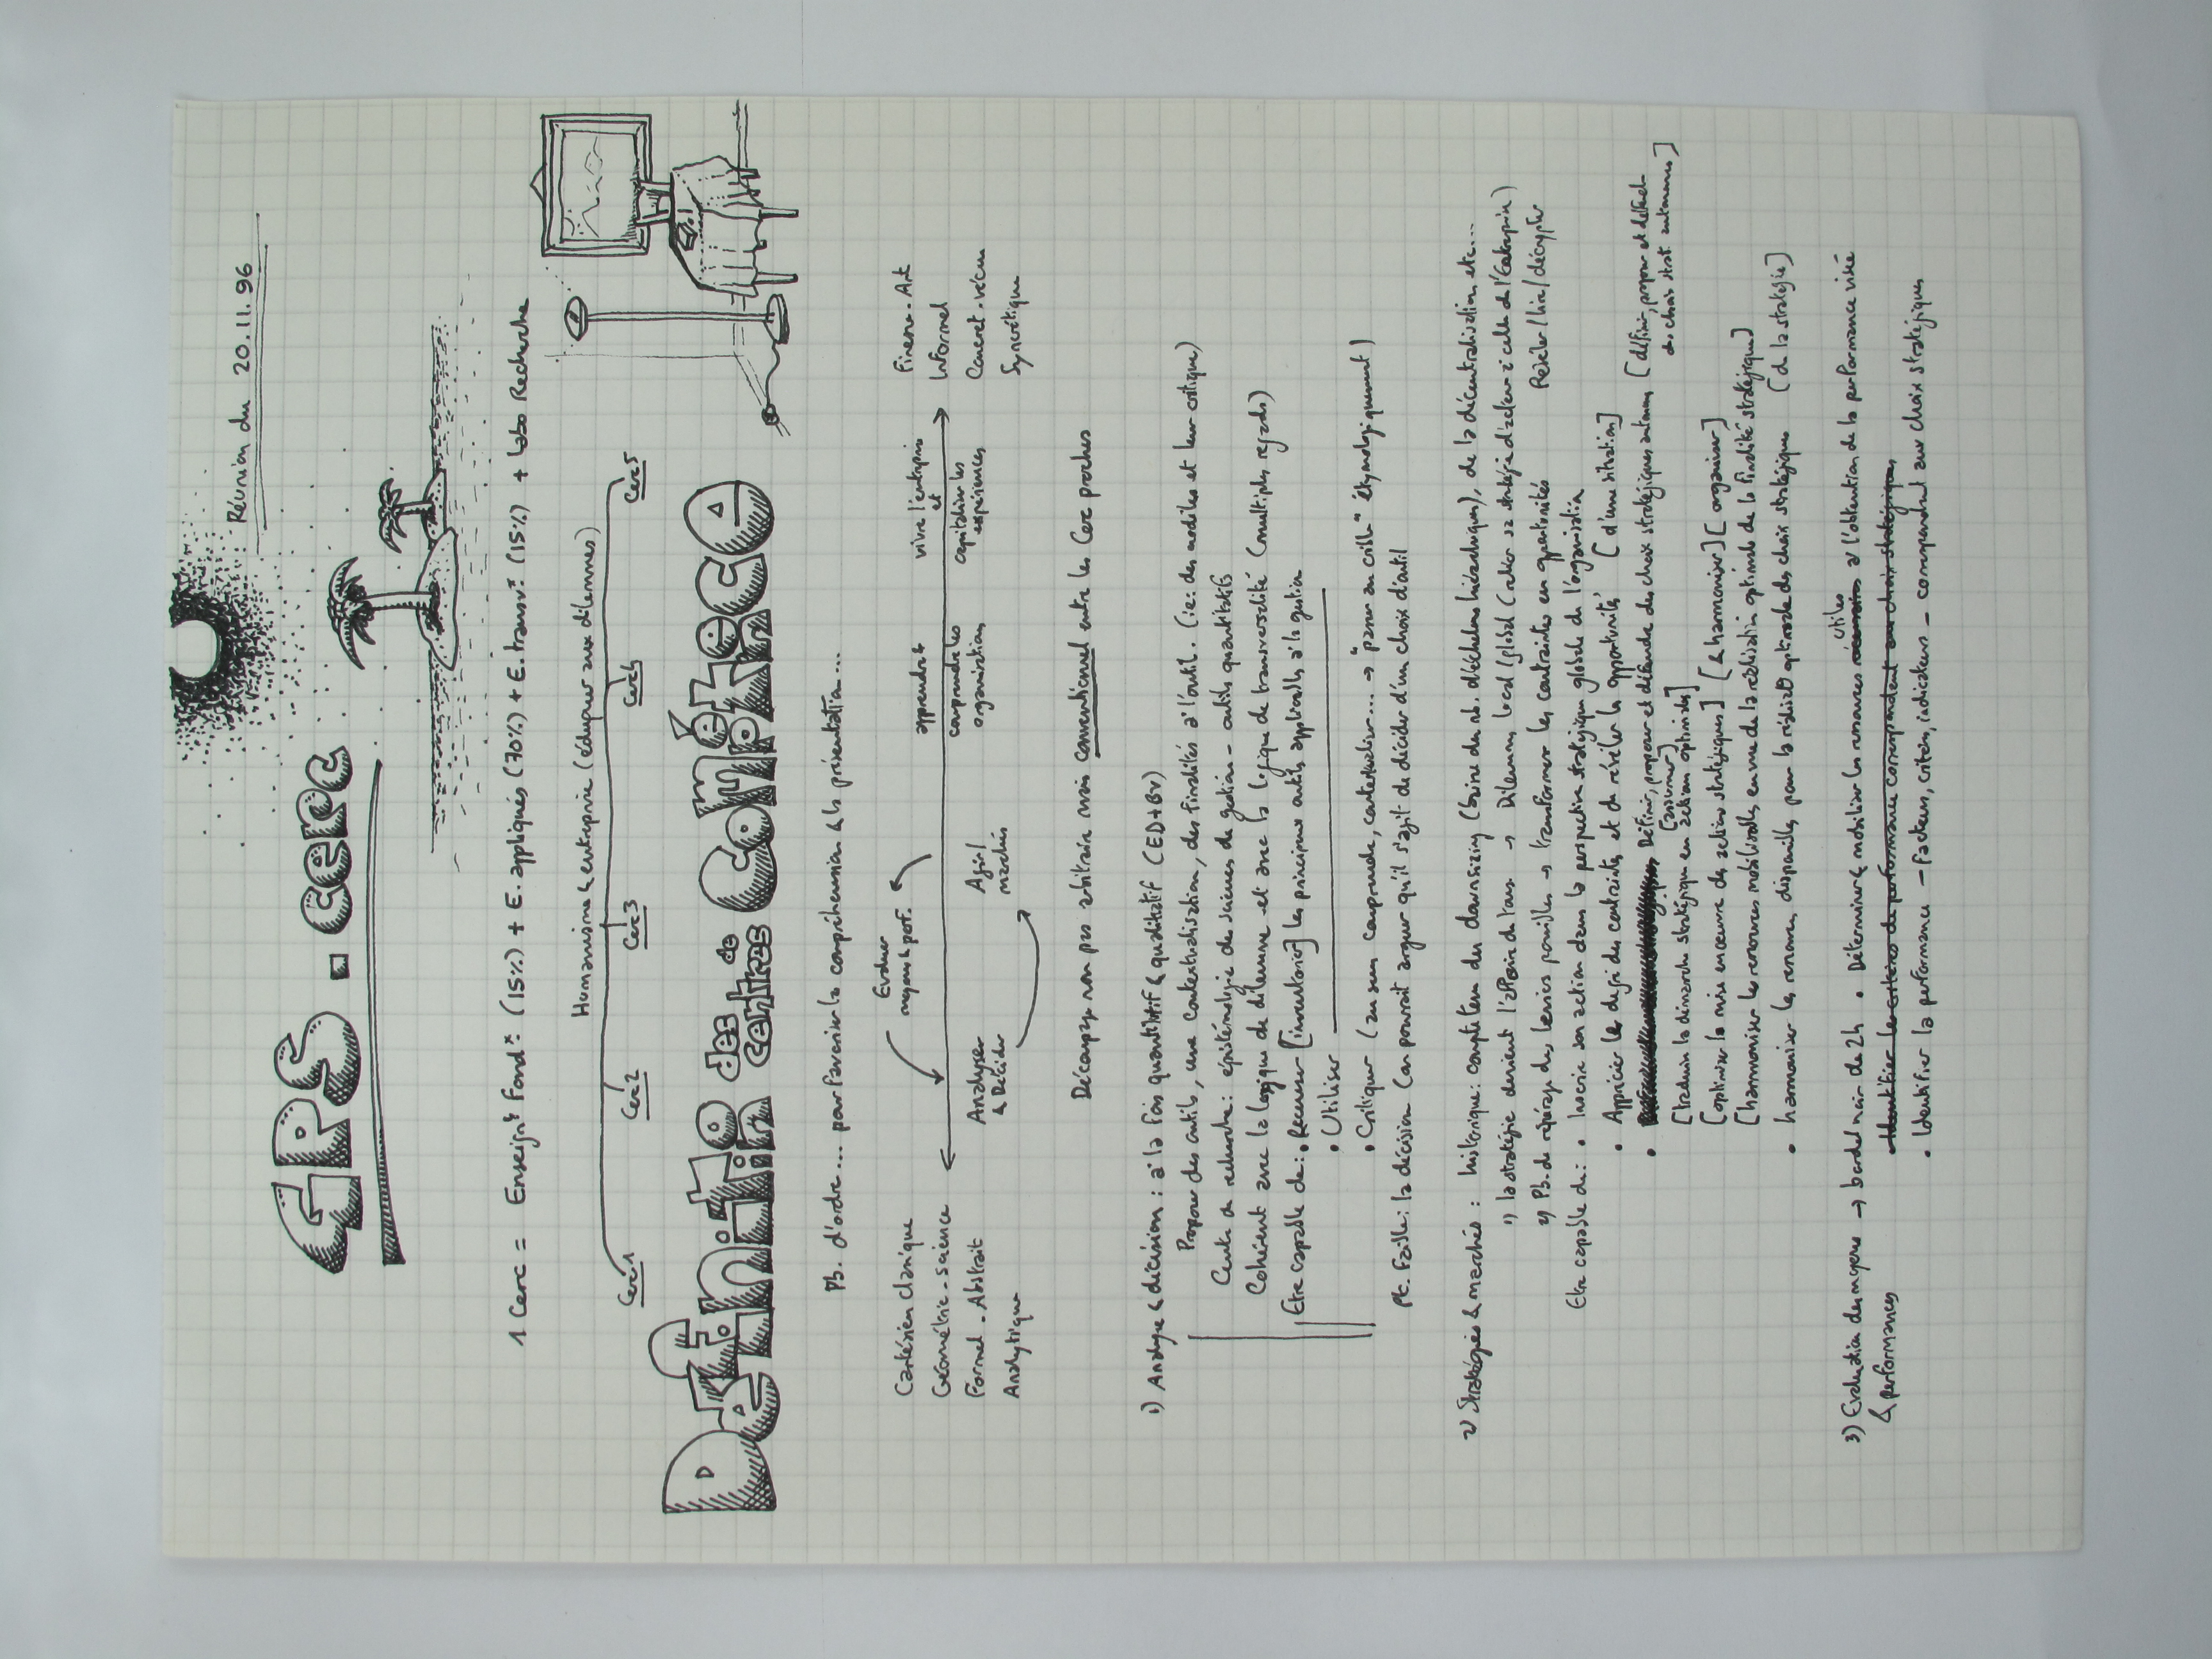 Réunion du 20.11.96
GRS. cerc
1 Cerc = Enseignt Fond: (15%) + E. appliqués (70%) + E. transv: (15%) + Labo Recherche
Humanisme & entreprise (éduquer aux dilemmes)
Cerc1 Cerc2 Cerc3 Cerc4 Cerc5
Définition des centres de compétence
Pb. d'ordre... pour favoriser la compréhension & la présentation...
Cartésien clanique
Géométrie - science
Formel - Abstrait
Analytique
Evaluer
moyens & perf.
Analyser
& Décider
Agir /
marchés
apprendre &
comprendre les
organisations
vivre l'entreprise
et
capitaliser les
expériences
Finesse - Art
Informel
Concret - vécu
Syncrétique
Découpage non pas arbitraire mais conventionnel entre les Cerc proches
1) Analyse & décision : à la fois quantitatif & qualitatif (ED+BV)
Proposer des outils, une contextualisation, des finalités à l'outil. (ie: des modèles et leur critique)
Centre de recherche : épistémologie des sciences de gestion - outils quantitatifs
Cohérent avec la logique de dilemme et avec la logique de transversalité (multiples regards)
Etre capable de : • Recenser [inventorier] les principaux outils applicables à la gestion
• Utiliser
• Critiquer (au sens comprendre, contextualiser... → "passer au crible" étymologiquement)
Pt. Faible : la décision (on pourrait arguer qu'il s'agit de décider d'un choix d'outil
2) Stratégies & marchés : historique : compte tenu du downsizing (baisse du nb. d'échelons hiérarchiques), de la décentralisation etc...
1) la stratégie devient l'affaire de tous → Dilemme local/global (relier sa stratégie d'acteur à celle de l'Entreprise)
2) Pb. de repérage des leviers possibles → transformer les contraintes en opportunités Révéler/lire/décrypter
Etre capable de : • Inscrire son action dans la perspective stratégique globale de l'organisation
• Apprécier le degré des contraintes et de révéler les opportunités [d'une situation]
• Définir, proposer et défendre des choix stratégiques autonomes [définir, proposer et défend-
des choix strat. autonomes]
[assumer]
[traduire la démarche stratégique en actions optimisées]
[optimiser la mise en œuvre des actions stratégiques] [& harmoniser] [organiser]
[harmoniser les ressources mobilisables en vue de la réalisation optimale de la finalité stratégique]
• harmoniser les ressources disponibles pour la réalisat° optimale des choix stratégiques [de la stratégie]
3) Evaluation des moyens → bordel noir de 2h • Déterminer & mobiliser les ressources nécessaires utiles à l'obtention de la performance visée
& performances
• Identifier les critères de performance correspondant aux choix stratégiques
• Identifier la performance - facteurs, critères, indicateurs - correspondant aux choix stratégiques